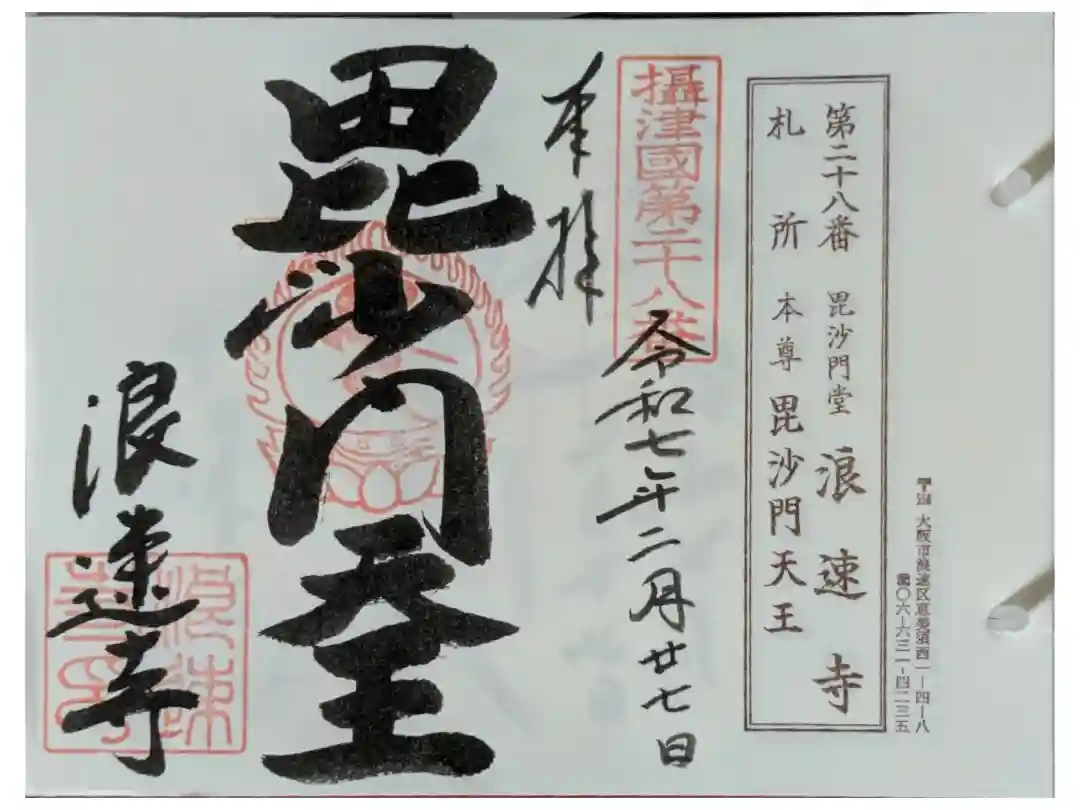 第二十八番 毘沙門堂 浪速寺
札所 本尊 毘沙門天王
大阪市浪速区恵美須西一ー四ー八
〇六ー六三一ー四二三五
攝津國第二十八番
奉拝
令和七年二月廿七日
毘沙門天王
浪速寺
浪速
寺印